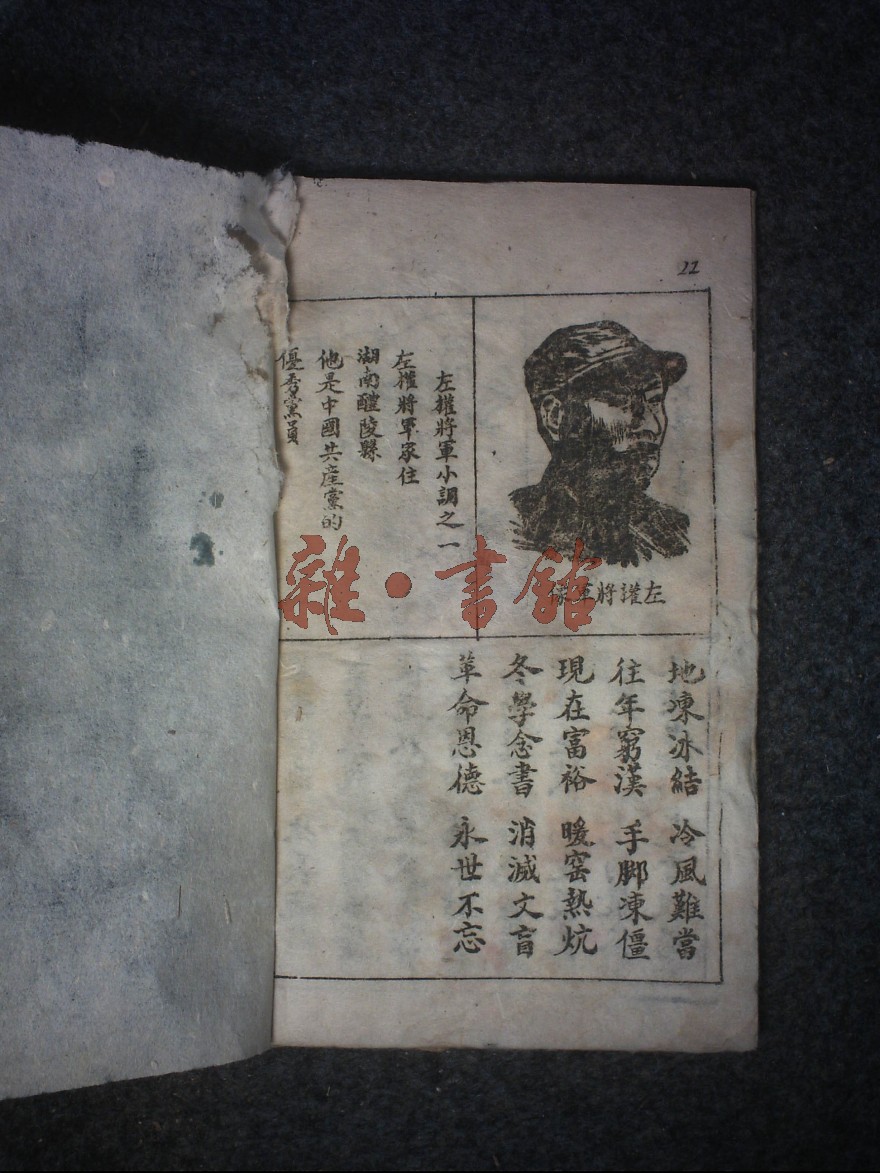 22
左權將軍像
左權將軍小調之一
左權將軍家住
湖南醴陵縣
他是中國共產黨的
優秀黨員
地凍冰結 冷風難當
往年窮漢 手脚凍僵
現在富裕 暖窑熱炕
冬學念書 消滅文盲
革命恩德 永世不忘
雜·書館